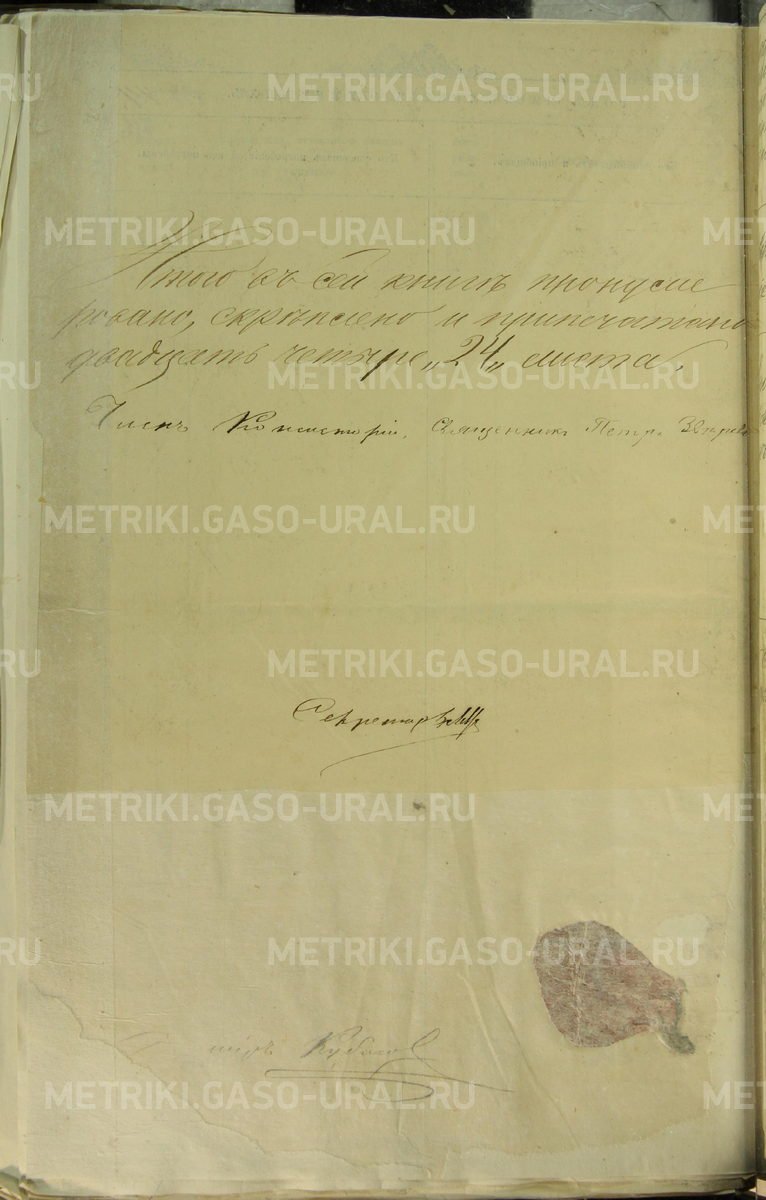 METRIKI.GASO-URAL.RU
METRIKI.GASO-URAL.RU
Итого въ сей книгѣ пронумме
ровано, скрѣплено и припечатано
двадцать четыре „24„ листа.
METRIKI.GASO-URAL.RU
Членъ Консисторіи, Священникъ Петръ
METRIKI.GASO-URAL.RU
METRIKI.GASO-URAL.RU
Секретарь
METRIKI.GASO-URAL.RU
METRIKI.GASO-URAL.RU
METRIKI.GASO-URAL.RU